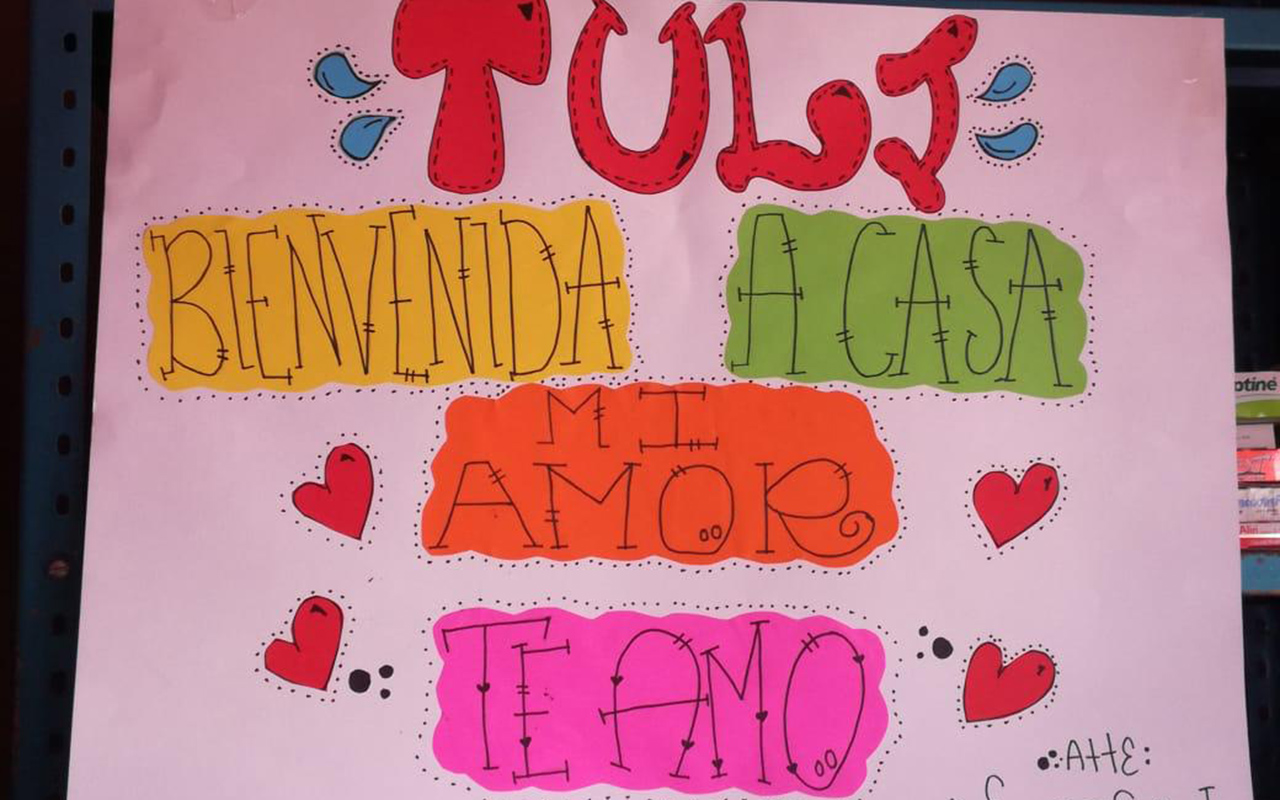 TULI
BIENVENIDA A CASA
MI
AMOR
TE AMO
ATTE: